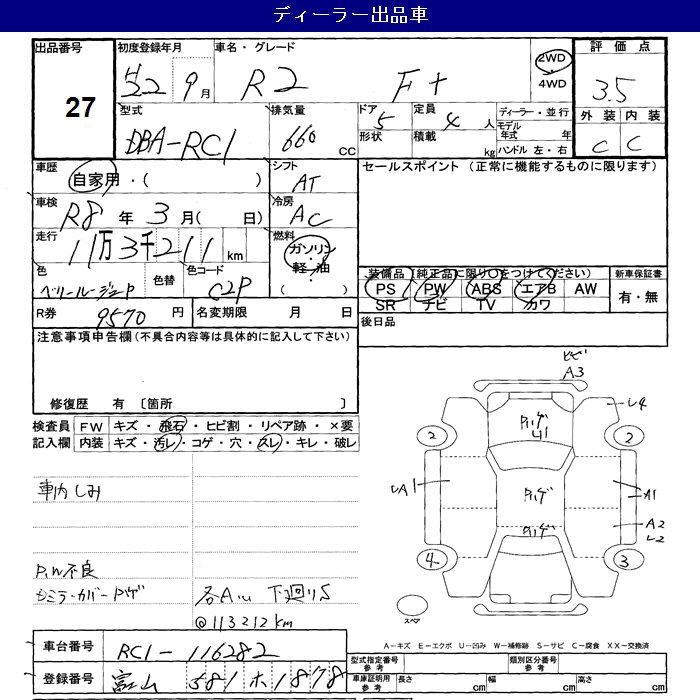 ディーラー出品車
出品番号
27
初度登録年月
H22 9月
車名・グレード
R2 F+
2WD
4WD
評価点
3.5
外装 内装
C C
型式
DBA-RC1
排気量
660 CC
ドア 5
形状
定員 4 人
積載 kg
ディーラー・並行
モデル年式 年
ハンドル 左・右
車歴
自家用・( )
シフト
AT
セールスポイント (正常に機能するものに限ります)
車検
R8 年 3 月( 日)
冷房
AC
走行
11万3千211km
燃料
ガソリン
軽・油
( )
色
ベリールージュP
色替
色コード
C2P
装備品(純正品に限り○をつけてください)
PS PW ABS エアB AW
SR ナビ TV カワ
新車保証書
有・無
R券 9570 円
名変期限 月 日
後日品
注意事項申告欄(不具合内容等は具体的に記入して下さい)
修復歴 有 〔箇所 〕
検査員記入欄
FW キズ・飛石・ヒビ割・リペア跡・×要
内装 キズ・汚レ・コゲ・穴・スレ・キレ・破レ
車内しみ
P.W不良
ドミラーカバーハゲ
各AU 下廻りS
@113212km
ヒビ
A3
ハゲ
U1
U4
2
2
UA1
ハゲ
A1
ハゲ
A2
U2
4
3
スペア
A-キズ E-エクボ U-凹み W-補修跡 S-サビ C-腐食 XX-交換済
車台番号
RC1-116282
登録番号
富山 581 ホ 1878
型式指定番号
参考
類別区分番号
参考
車庫証明用
参考
長さ cm
幅 cm
高さ cm